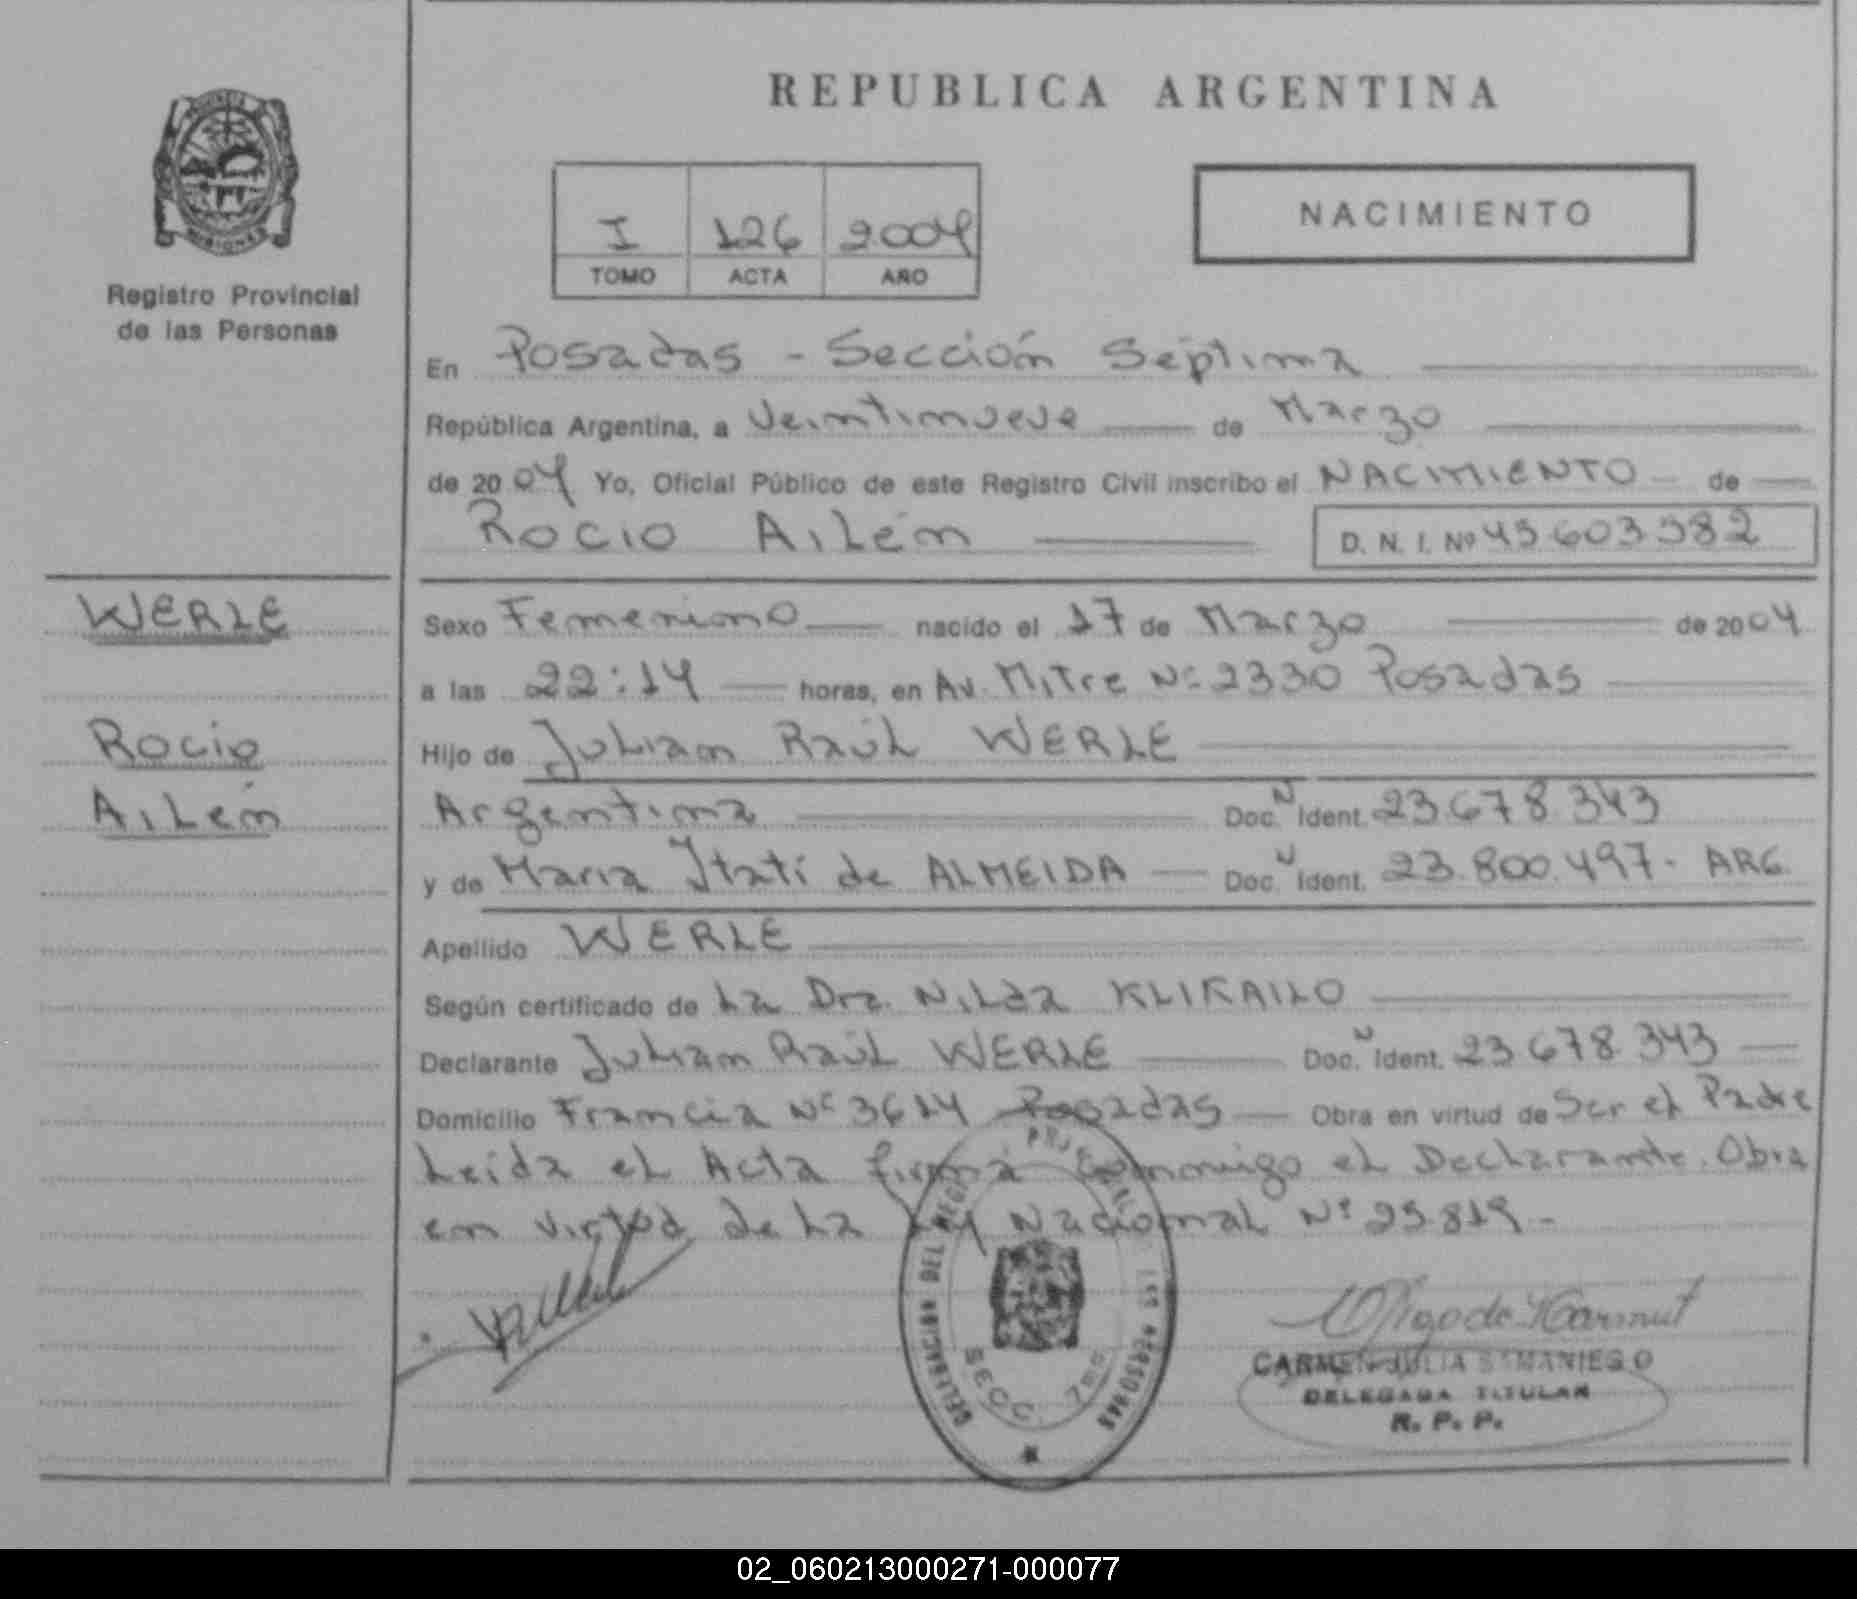 REPUBLICA ARGENTINA
MISIONES
Registro Provincial
de las Personas
I 126 2004
TOMO ACTA AÑO
NACIMIENTO
En Posadas - Sección Séptima
República Argentina, a Veintinueve de Marzo
de 2004 Yo, Oficial Público de este Registro Civil inscribo el NACIMIENTO de
Rocio Ailén D. N. I. Nº 45603582
WERLE
Rocio
Ailén
Sexo Femenino nacido el 17 de Marzo de 2004
a las 22:14 horas, en Av. Mitre Nº 2330 Posadas
Hijo de Julian Raúl WERLE
Argentina Doc. N Ident. 23.678.343
y de Maria Itatí de ALMEIDA Doc. Ident. 23.800.497- ARG.
Apellido WERLE
Según certificado de La Dra. Nilda
Declarante Julian Raúl WERLE Doc. Ident. 23 678 343
Domicilio Francia Nº 3614 Posadas Obra en virtud de Ser el Padre
Leída el Acta firma Conmigo el Declarante. Obra
en virtud de La Ley Nacional Nº 25.819.-
SECC. 7ma
CARMEN JULIA SAMANIEGO
DELEGADA TITULAR
R. P. P.
02_060213000271-000077